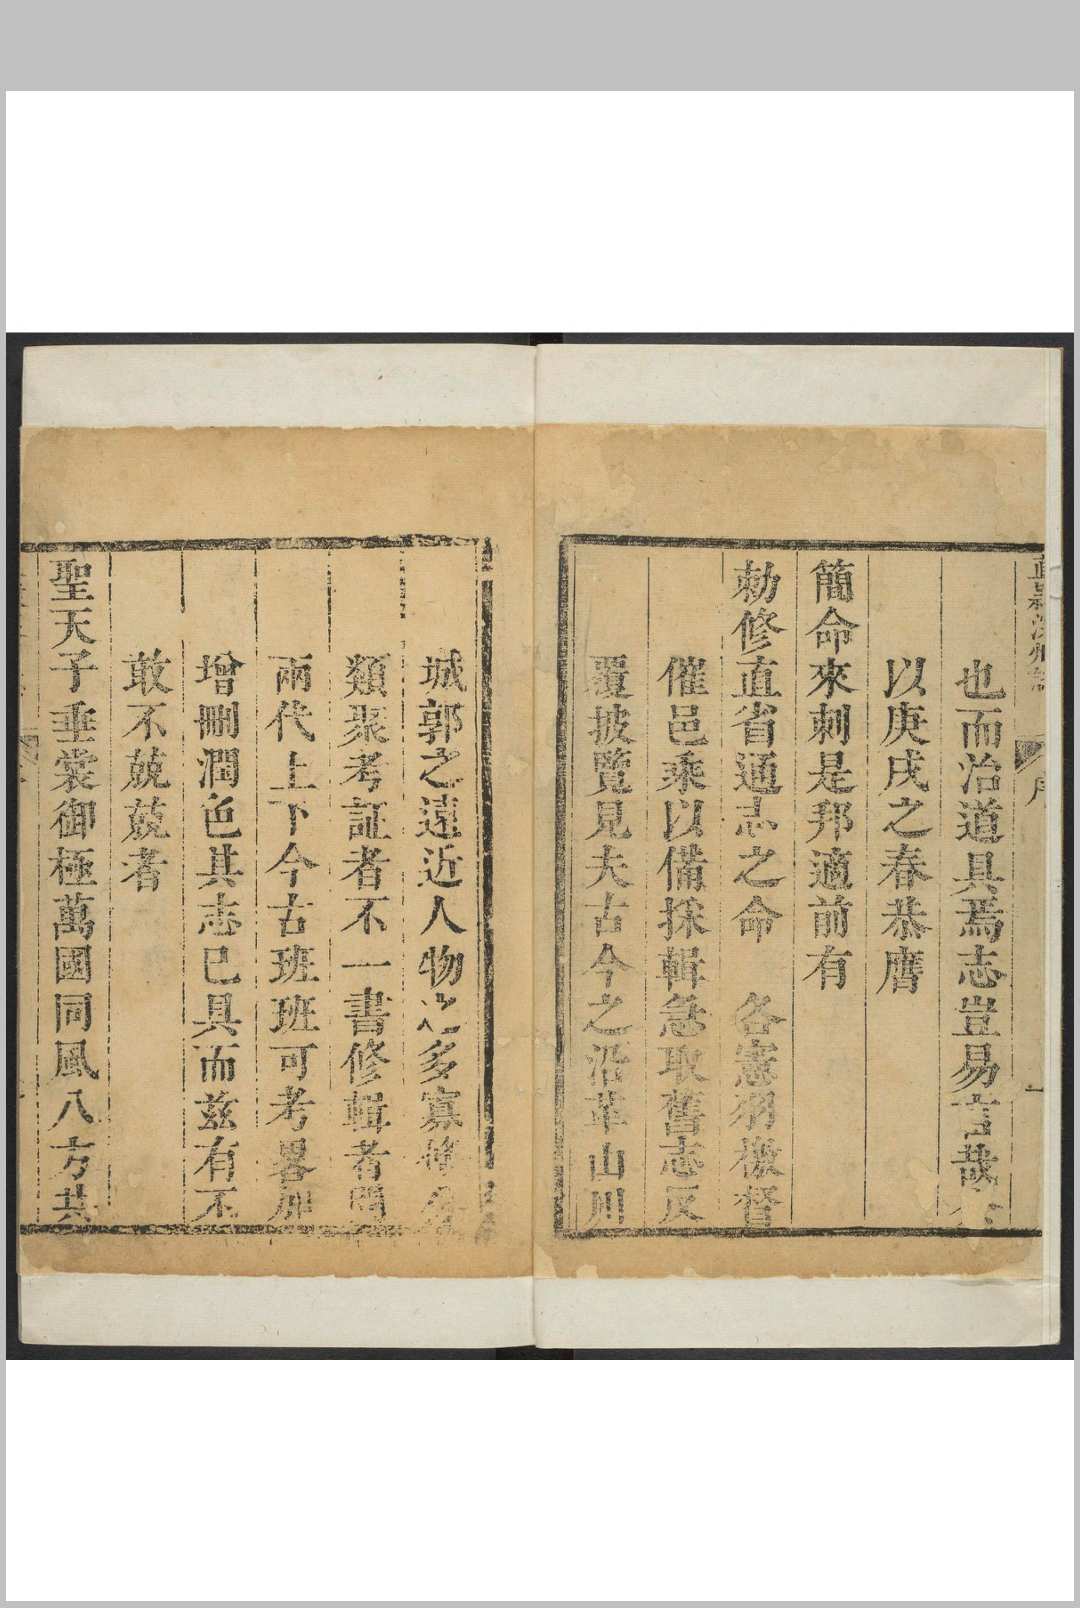 序
也而治道具焉志豈易言哉
以庚戌之春恭膺
簡命來刺是邦適前有
勅修直省通志之命 各憲羽檄督
催邑乘以備採輯急取舊志反
覆披覽見夫古今之沿革山川
城郭之遠近人物之多寡
類聚考証者不一書修輯者閱
兩代上下今古班班可考畧加
增刪潤色其志已具而兹有不
敢不兢兢者
聖天子垂裳御極萬國同風八方共